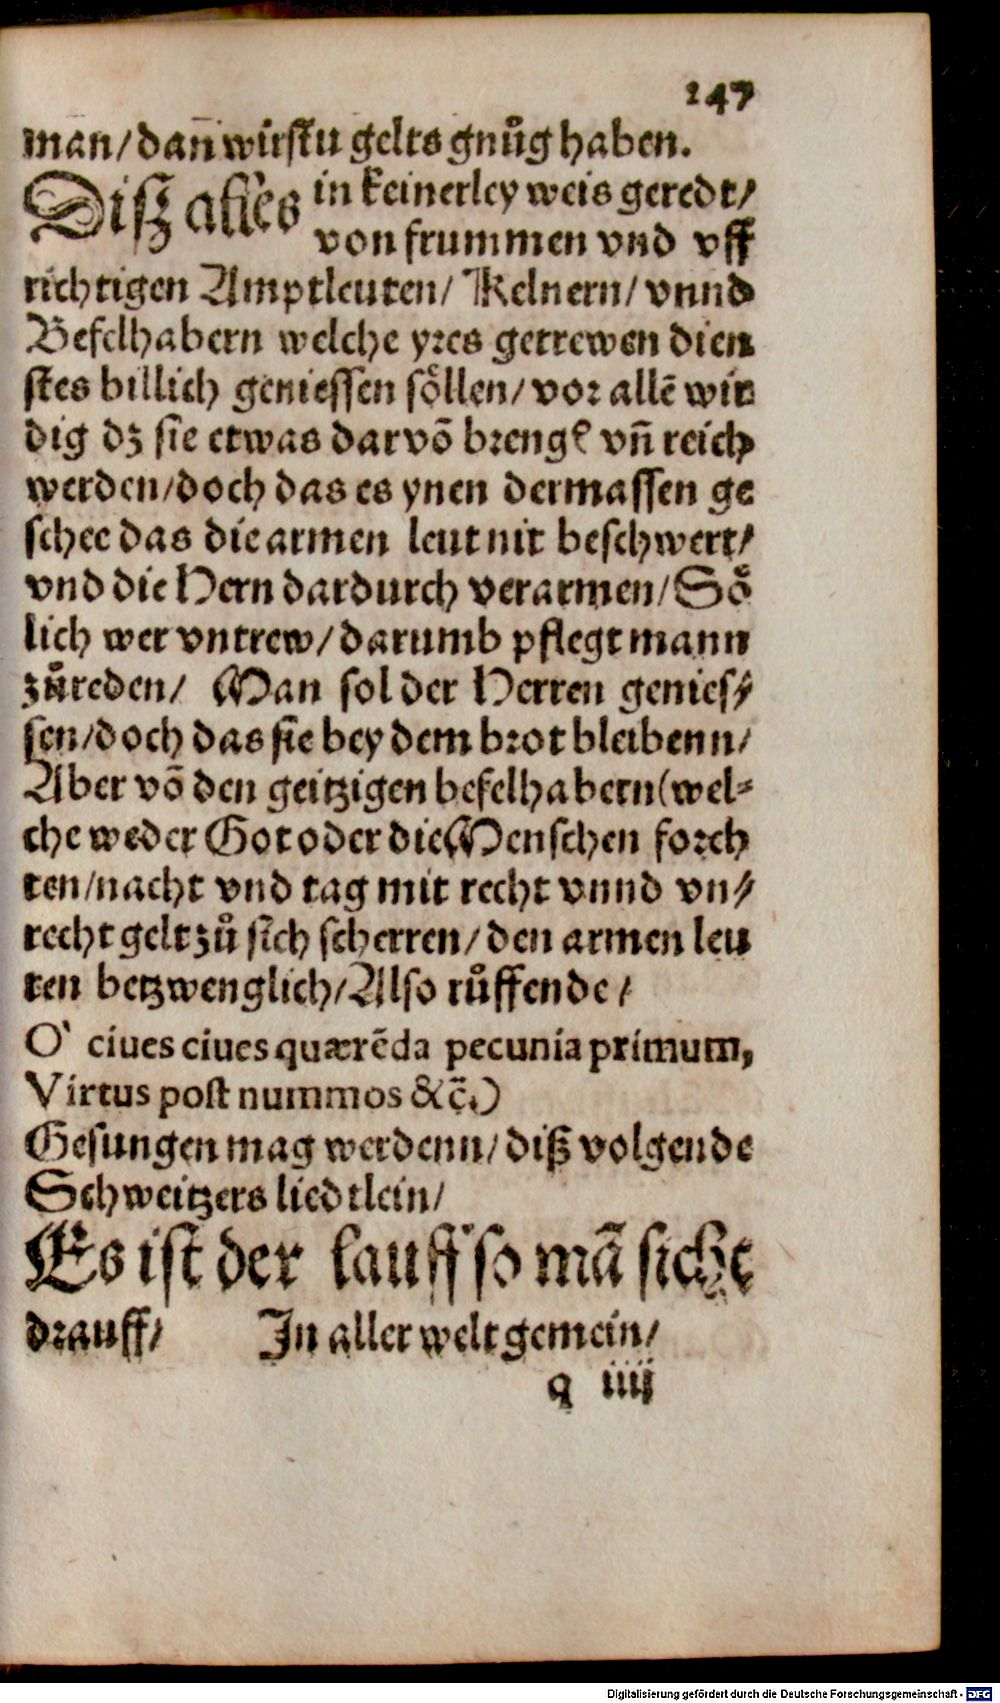 247
man/dañ wirstu gelts gnůg haben.
Disz alles in keinerley weis geredt/
von frummen vnd vff
richtigen Amptleuten/ Kelnern/ vnnd
Befelhabern welche yres getrewen dien
stes billich geniessen soͤllen/ vor allē wir
dig dz sie etwas darvō breng⸗ vñ reich
werden/doch das es ynen dermassen ge
schee das die armen leut nit beschwert/
vnd die Hern dardurch verarmen/Soͤ
lich wer vntrew/ darumb pflegt mann
zůreden/ Man sol der Herren genies⸗
sen/doch das sie bey dem brot bleibenn/
Aber vō den geitzigen befelhabern(wel⸗
che weder Got oder die Menschen forch
ten/nacht vnd tag mit recht vnnd vn⸗
recht gelt zů sich scherren/ den armen leu
ten betzwenglich/Also růffende/
O' ciues ciues quærēda pecunia primum,
Virtus post nummos &c̄.)
Gesungen mag werdenn/ diß volgende
Schweitzers liedtlein/
Es ist der lauff so mā sicht
drauff/ In aller welt gemein/
q iiij
Digitalisierung gefördert durch die Deutsche Forschungsgemeinschaft - DFG